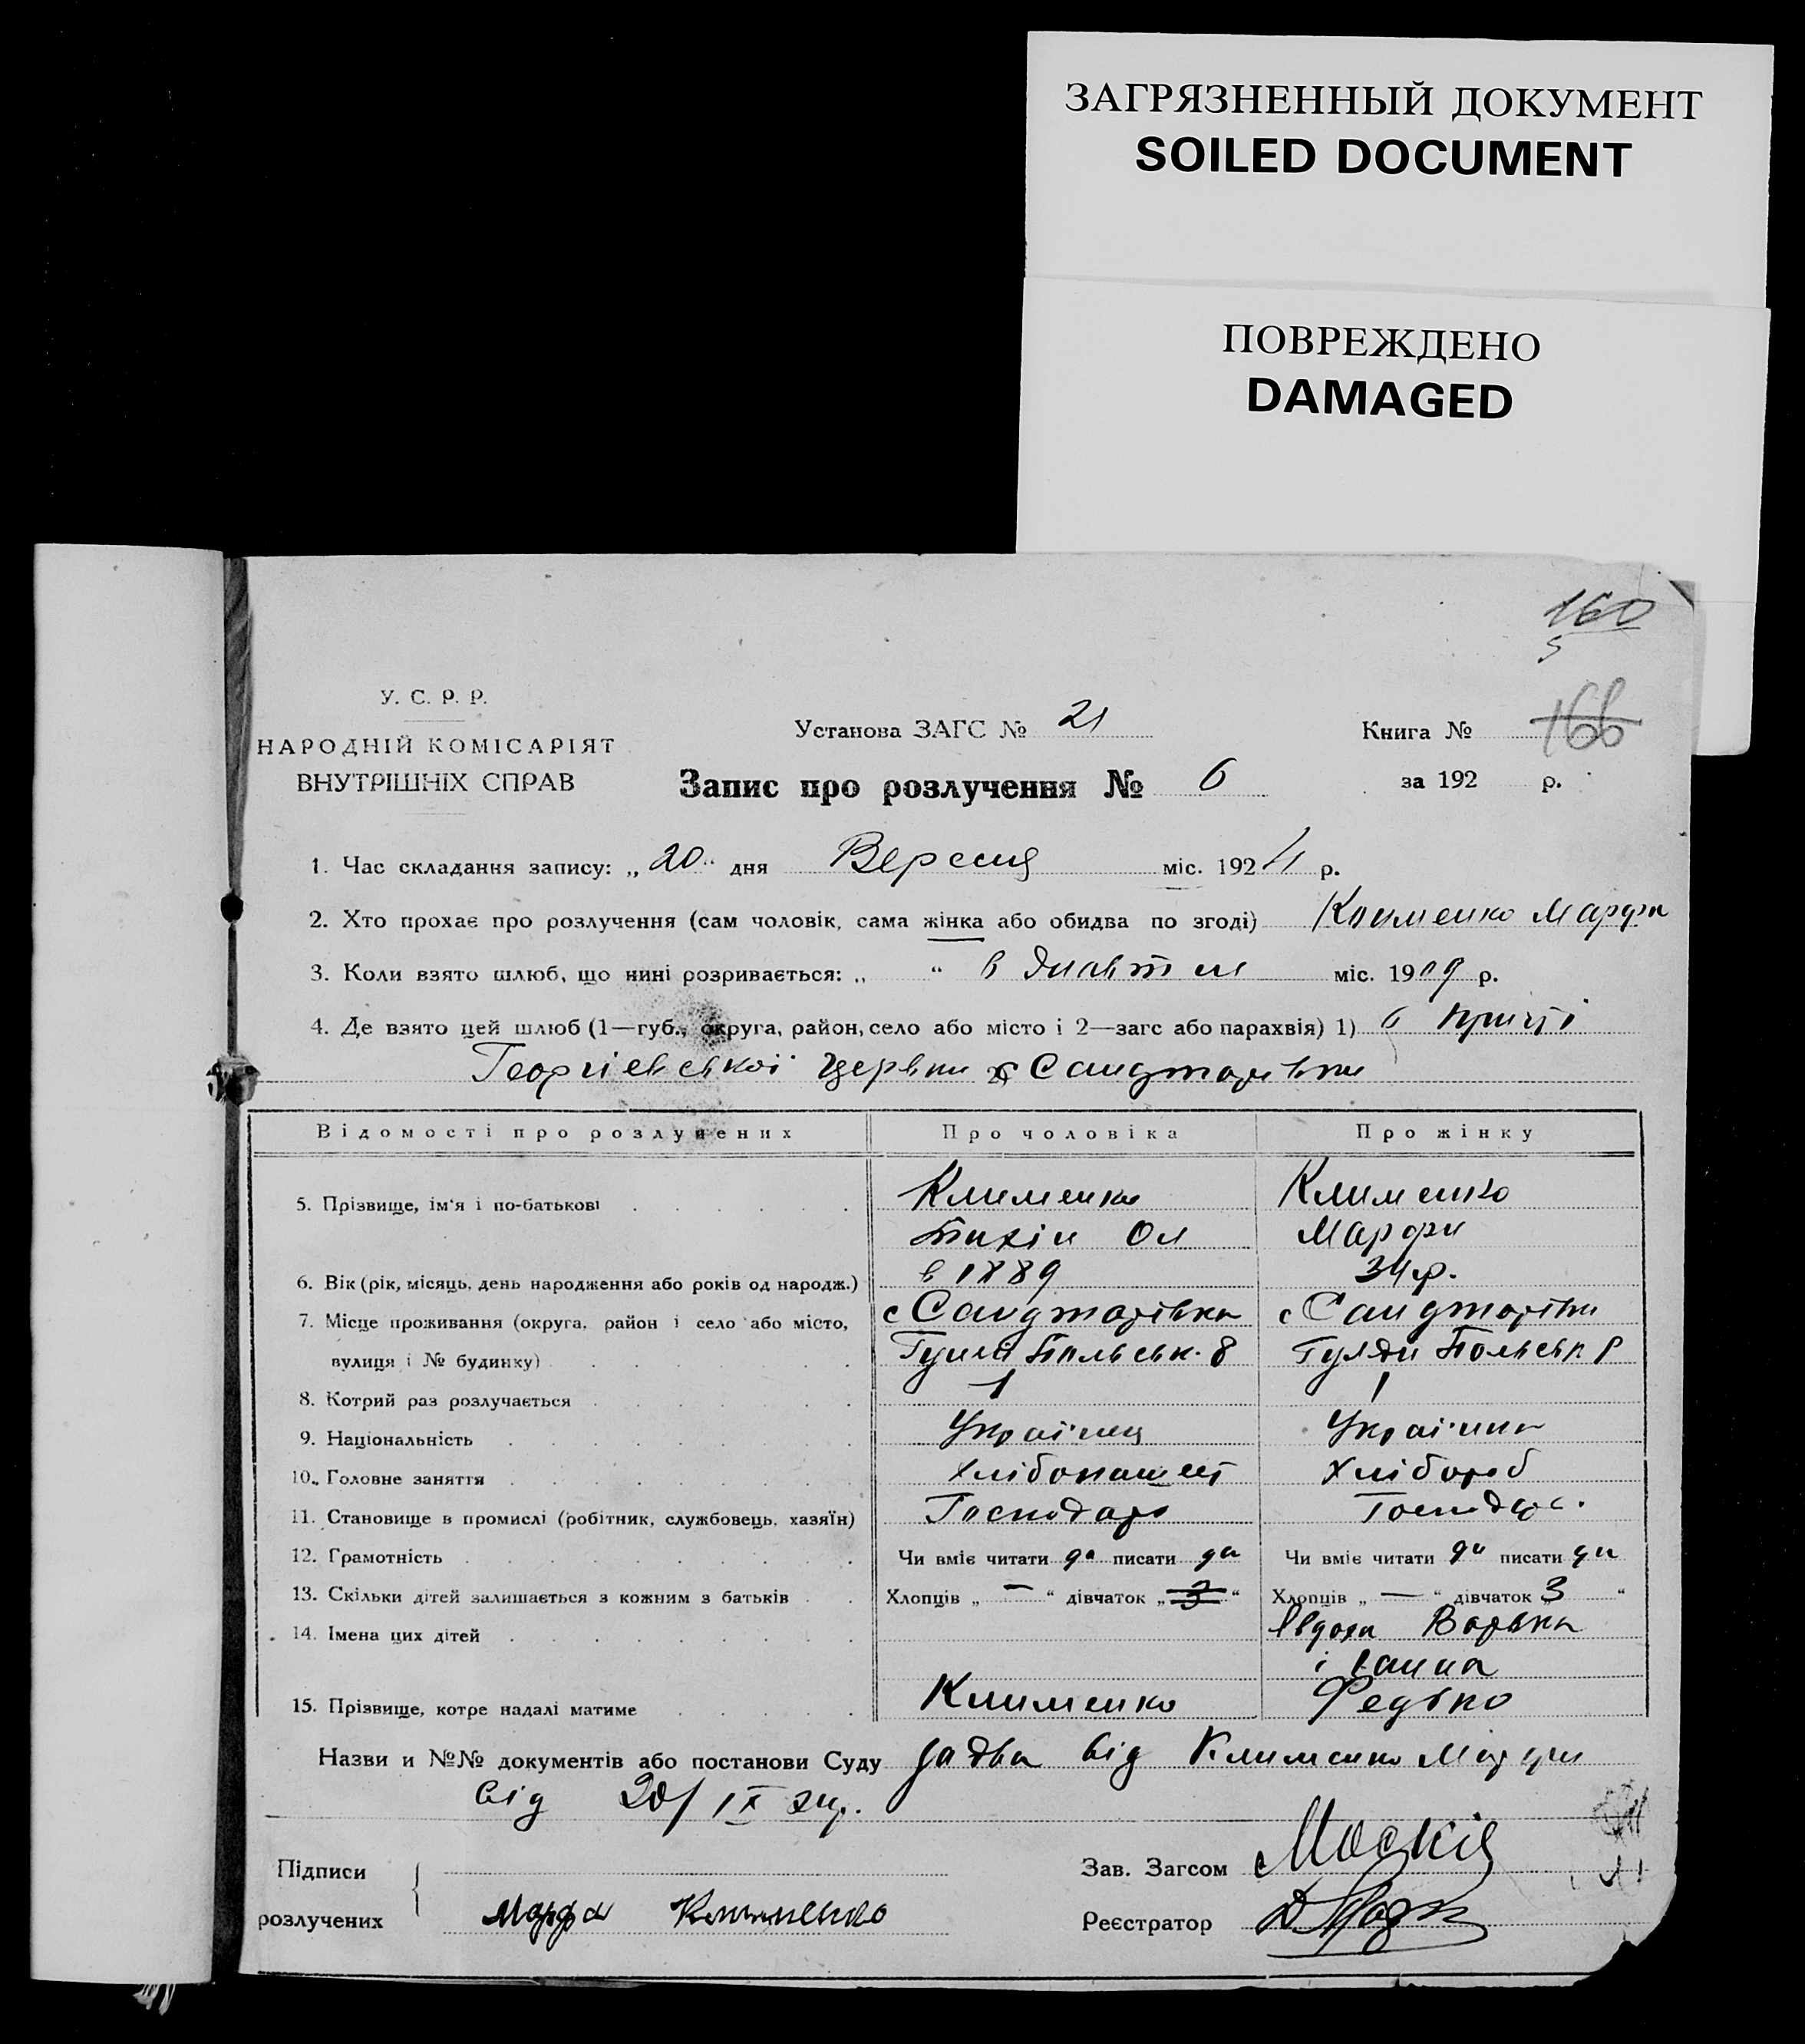 ЗАГРЯЗНЕННЫЙ ДОКУМЕНТ
SOILED DOCUMENT
ПОВРЕЖДЕНО
DAMAGED
160
5
У. С. Р. Р.
НАРОДНІЙ КОМІСАРІЯТ
ВНУТРІШНІХ СПРАВ
Установа ЗАГС № 21
Книга № 166
Запис про розлучення № 6
за 192 р.
1. Час складання запису: „ 20 " дня Вересня міс. 1924 р.
2. Хто прохає про розлучення (сам чоловік, сама жінка або обидва по згоді) Клименко Марфа
3. Коли взято шлюб, що нині розривається: „ " в міс. 1909 р.
4. Де взято цей шлюб (1—губ., округа, район, село або місто і 2—загс або парахвія) 1) в причті
Георгієвської церкви 2) с Санджарівки
Відомості про розлучених Про чоловіка Про жінку
5. Прізвище, ім'я і по-батькові Клименко Клименко
Тихін Ол Марфи
6. Вік (рік, місяць, день народження або років од народж.) в 1889 34 р.
7. Місце проживання (округа, район і село або місто, с Санджарівка с Санджарівки
вулиця і № будинку)
8. Котрий раз розлучається 1 1
9. Національність Українец Українка
10. Головне заняття Хлібопашест Хлібороб
11. Становище в промислі (робітник, службовець, хазяїн) Господарь Господар.
12. Грамотність Чи вміє читати да писати да Чи вміє читати да писати да
13. Скільки дітей залишається з кожним з батьків Хлопців „ — " дівчаток „ 3 " Хлопців „ — " дівчаток 3 "
14. Імена цих дітей Євдоха Варька
і Ганна
15. Прізвище, котре надалі матиме Клименко Редько
Назви и №№ документів або постанови Суду заява від Клименко Марфи
від 20/IX 24 р.
Підписи
Зав. Загсом
розлучених Марфа Клименко
Реєстратор